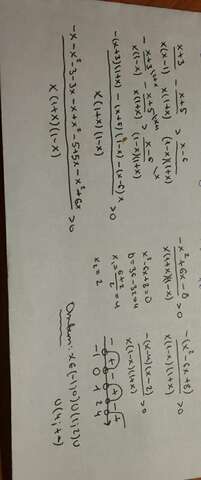 x+3 / x(x-1) - x+5 / x(1+x) > x-6 / (1-x)(1+x)
- x+3 \1+x / x(1-x) - x+5 \1-x / x(1+x) > x-6 \x / (1-x)(1+x)
-(x+3)(1+x) - (x+5)(1-x) - (x-6)x / x(1+x)(1-x) > 0
-x - x² - 3 - 3x - x + x² - 5 + 5x - x² + 6x / x(1+x)(1-x) > 0
-x² + 6x - 8 / x(1+x)(1-x) > 0
-(x² - 6x + 8) / x(1-x)(1+x) > 0
x² - 6x + 8 = 0
-(x-4)(x-2) / x(1-x)(1+x) > 0
x₁ = 6+2 / 2 = 4
x₂ = 2
- + - + - +
-1 0 1 2 4
Ответ: x∈(-1;0)∪(1;2)∪
∪(4;+∞)